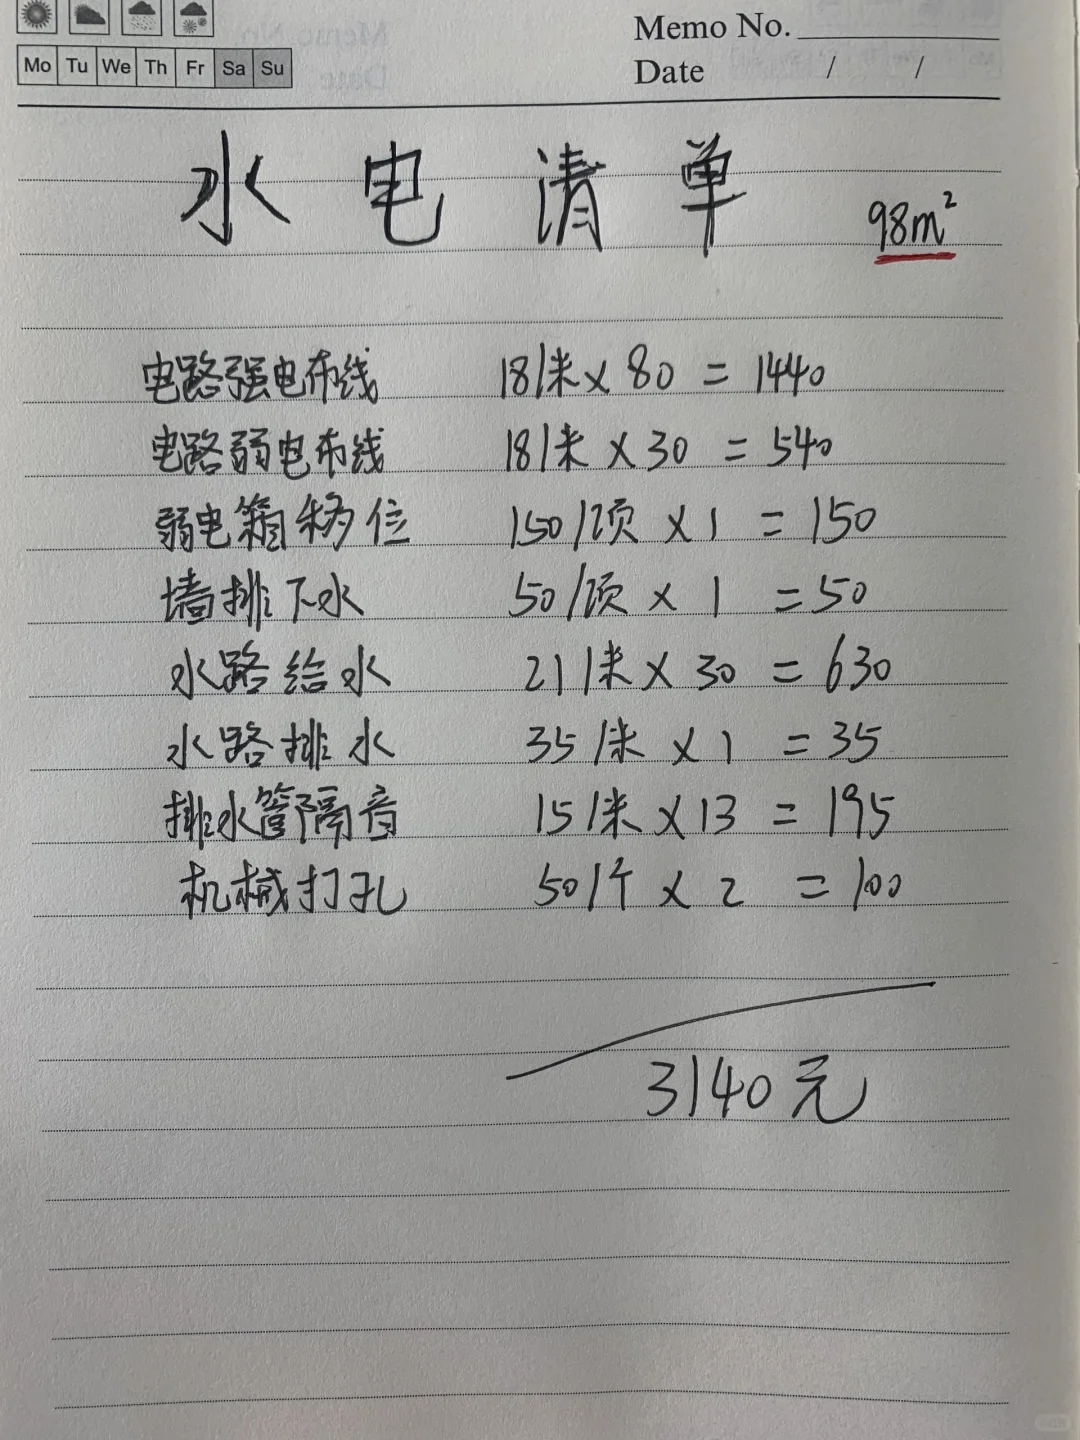 Memo No.
Mo Tu We Th Fr Sa Su
Date / /
水电清单
98m²
电路强电布线 18/米×80=1440
电路弱电布线 18/米×30=540
弱电箱移位 150/项×1=150
墙排下水 50/项×1=50
水路给水 21/米×30=630
水路排水 35/米×1=35
排水管隔音 15/米×13=195
机械打孔 50/个×2=100
3140元